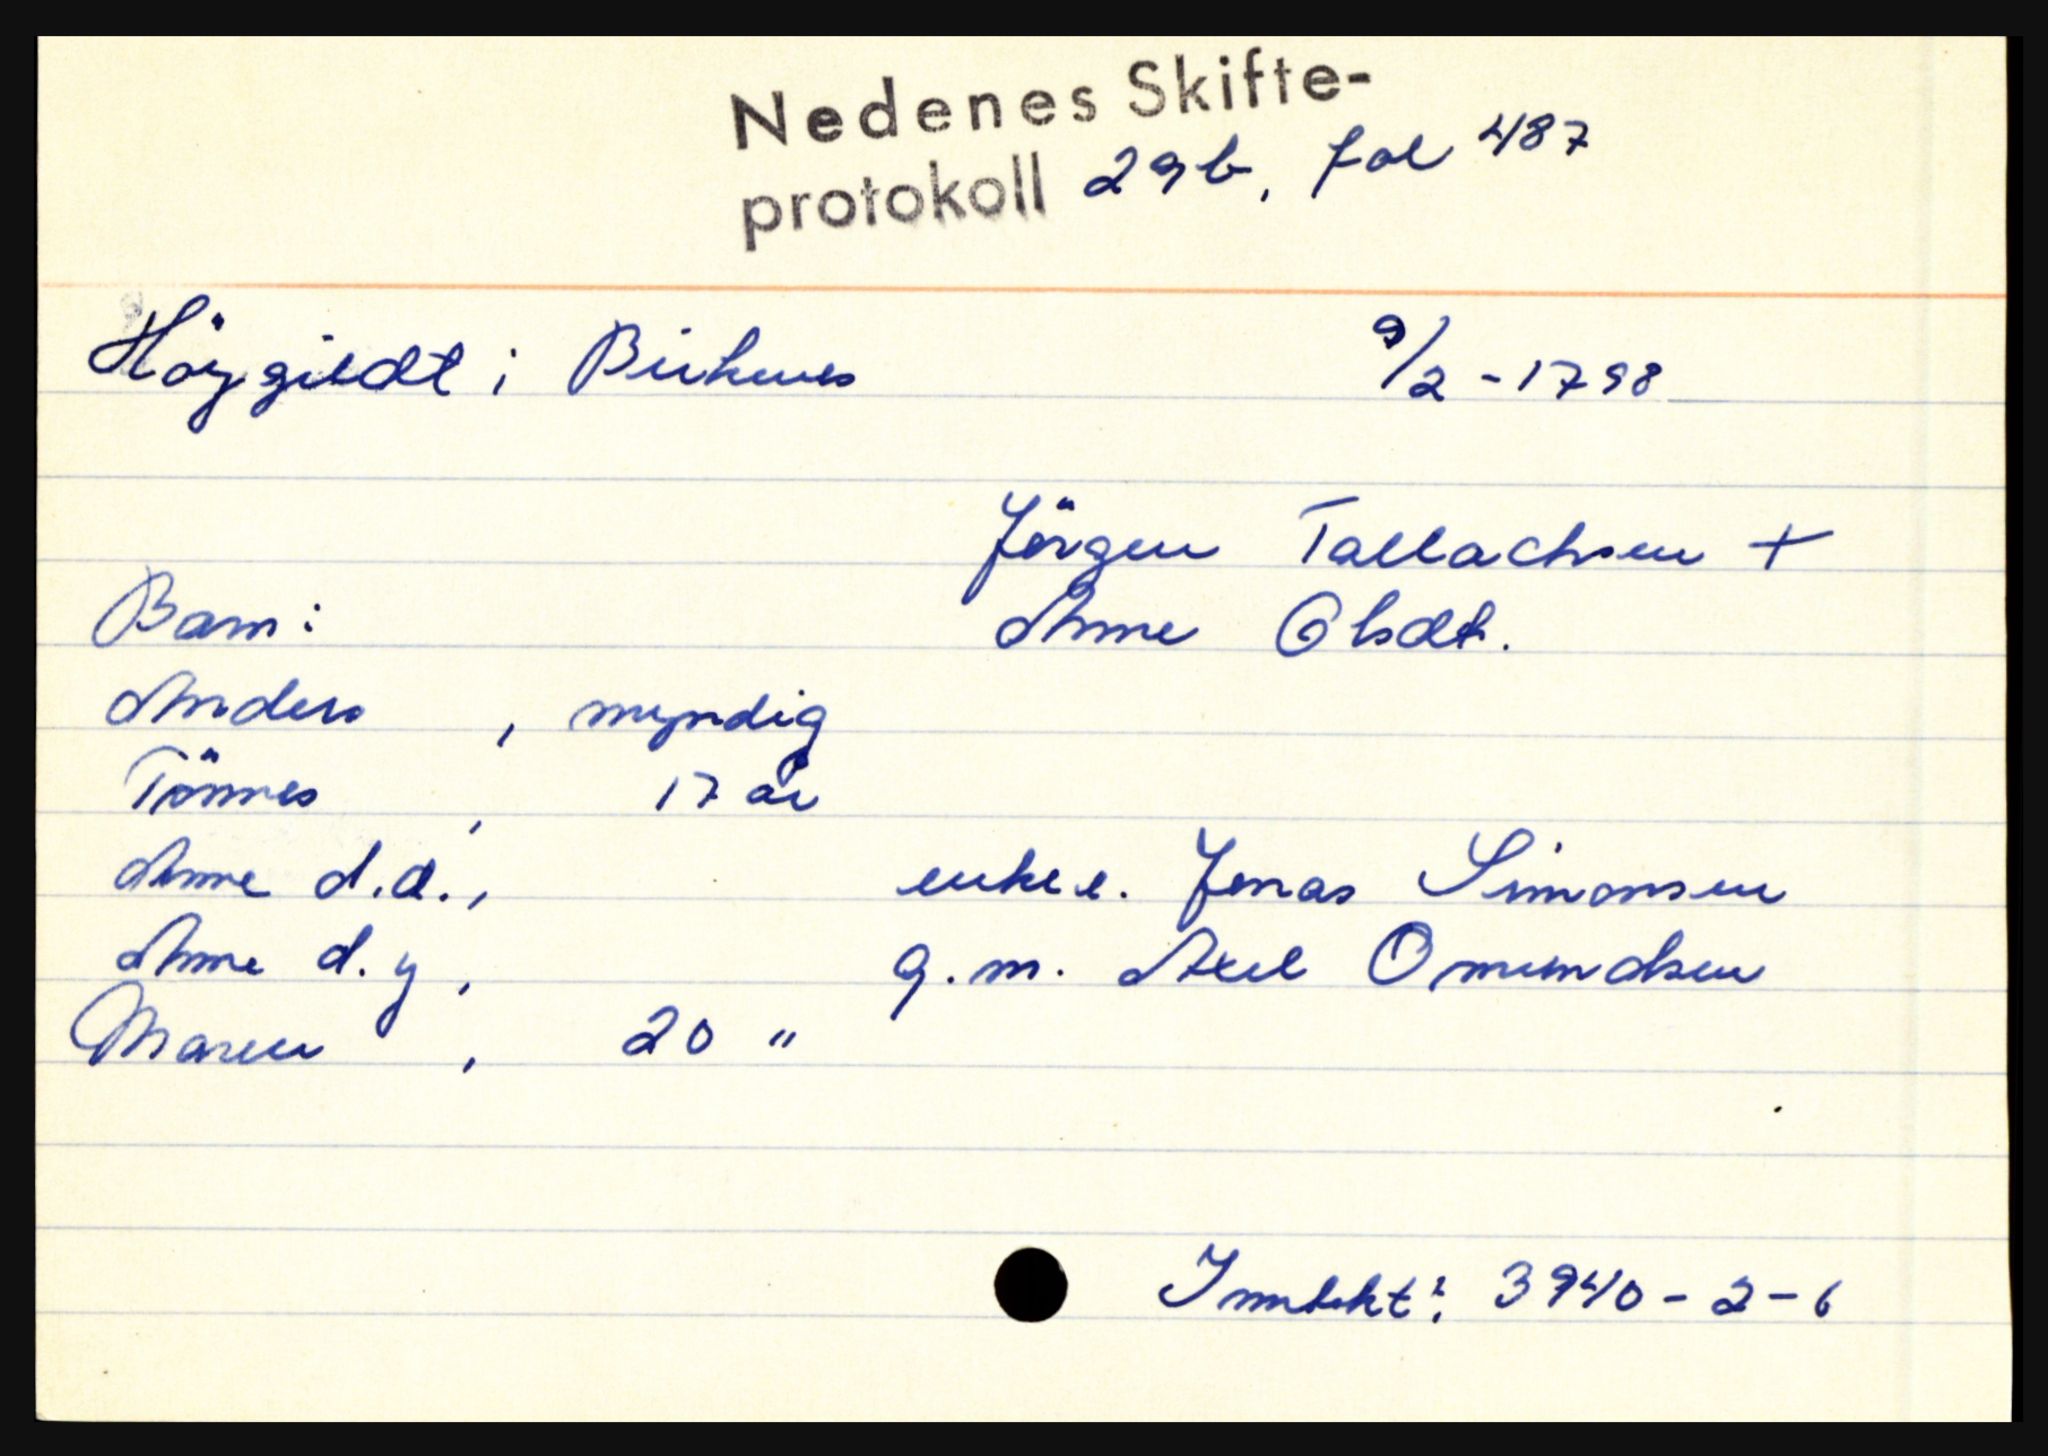 Nedenes Skifte-
protokoll 29b, fol 487
Höygildt i Birkenes 9/2 - 1798
Jörgen Tallachsen +
Barn: Anne Olsdt.
Anders , myndig
Tönnes , 17 år
Anne d.e., enke e. Jonas Simonsen
Anne d.y , g.m. Axel Omundsen
Maren , 20 "
Inntekt: 3940 - 2 - 6